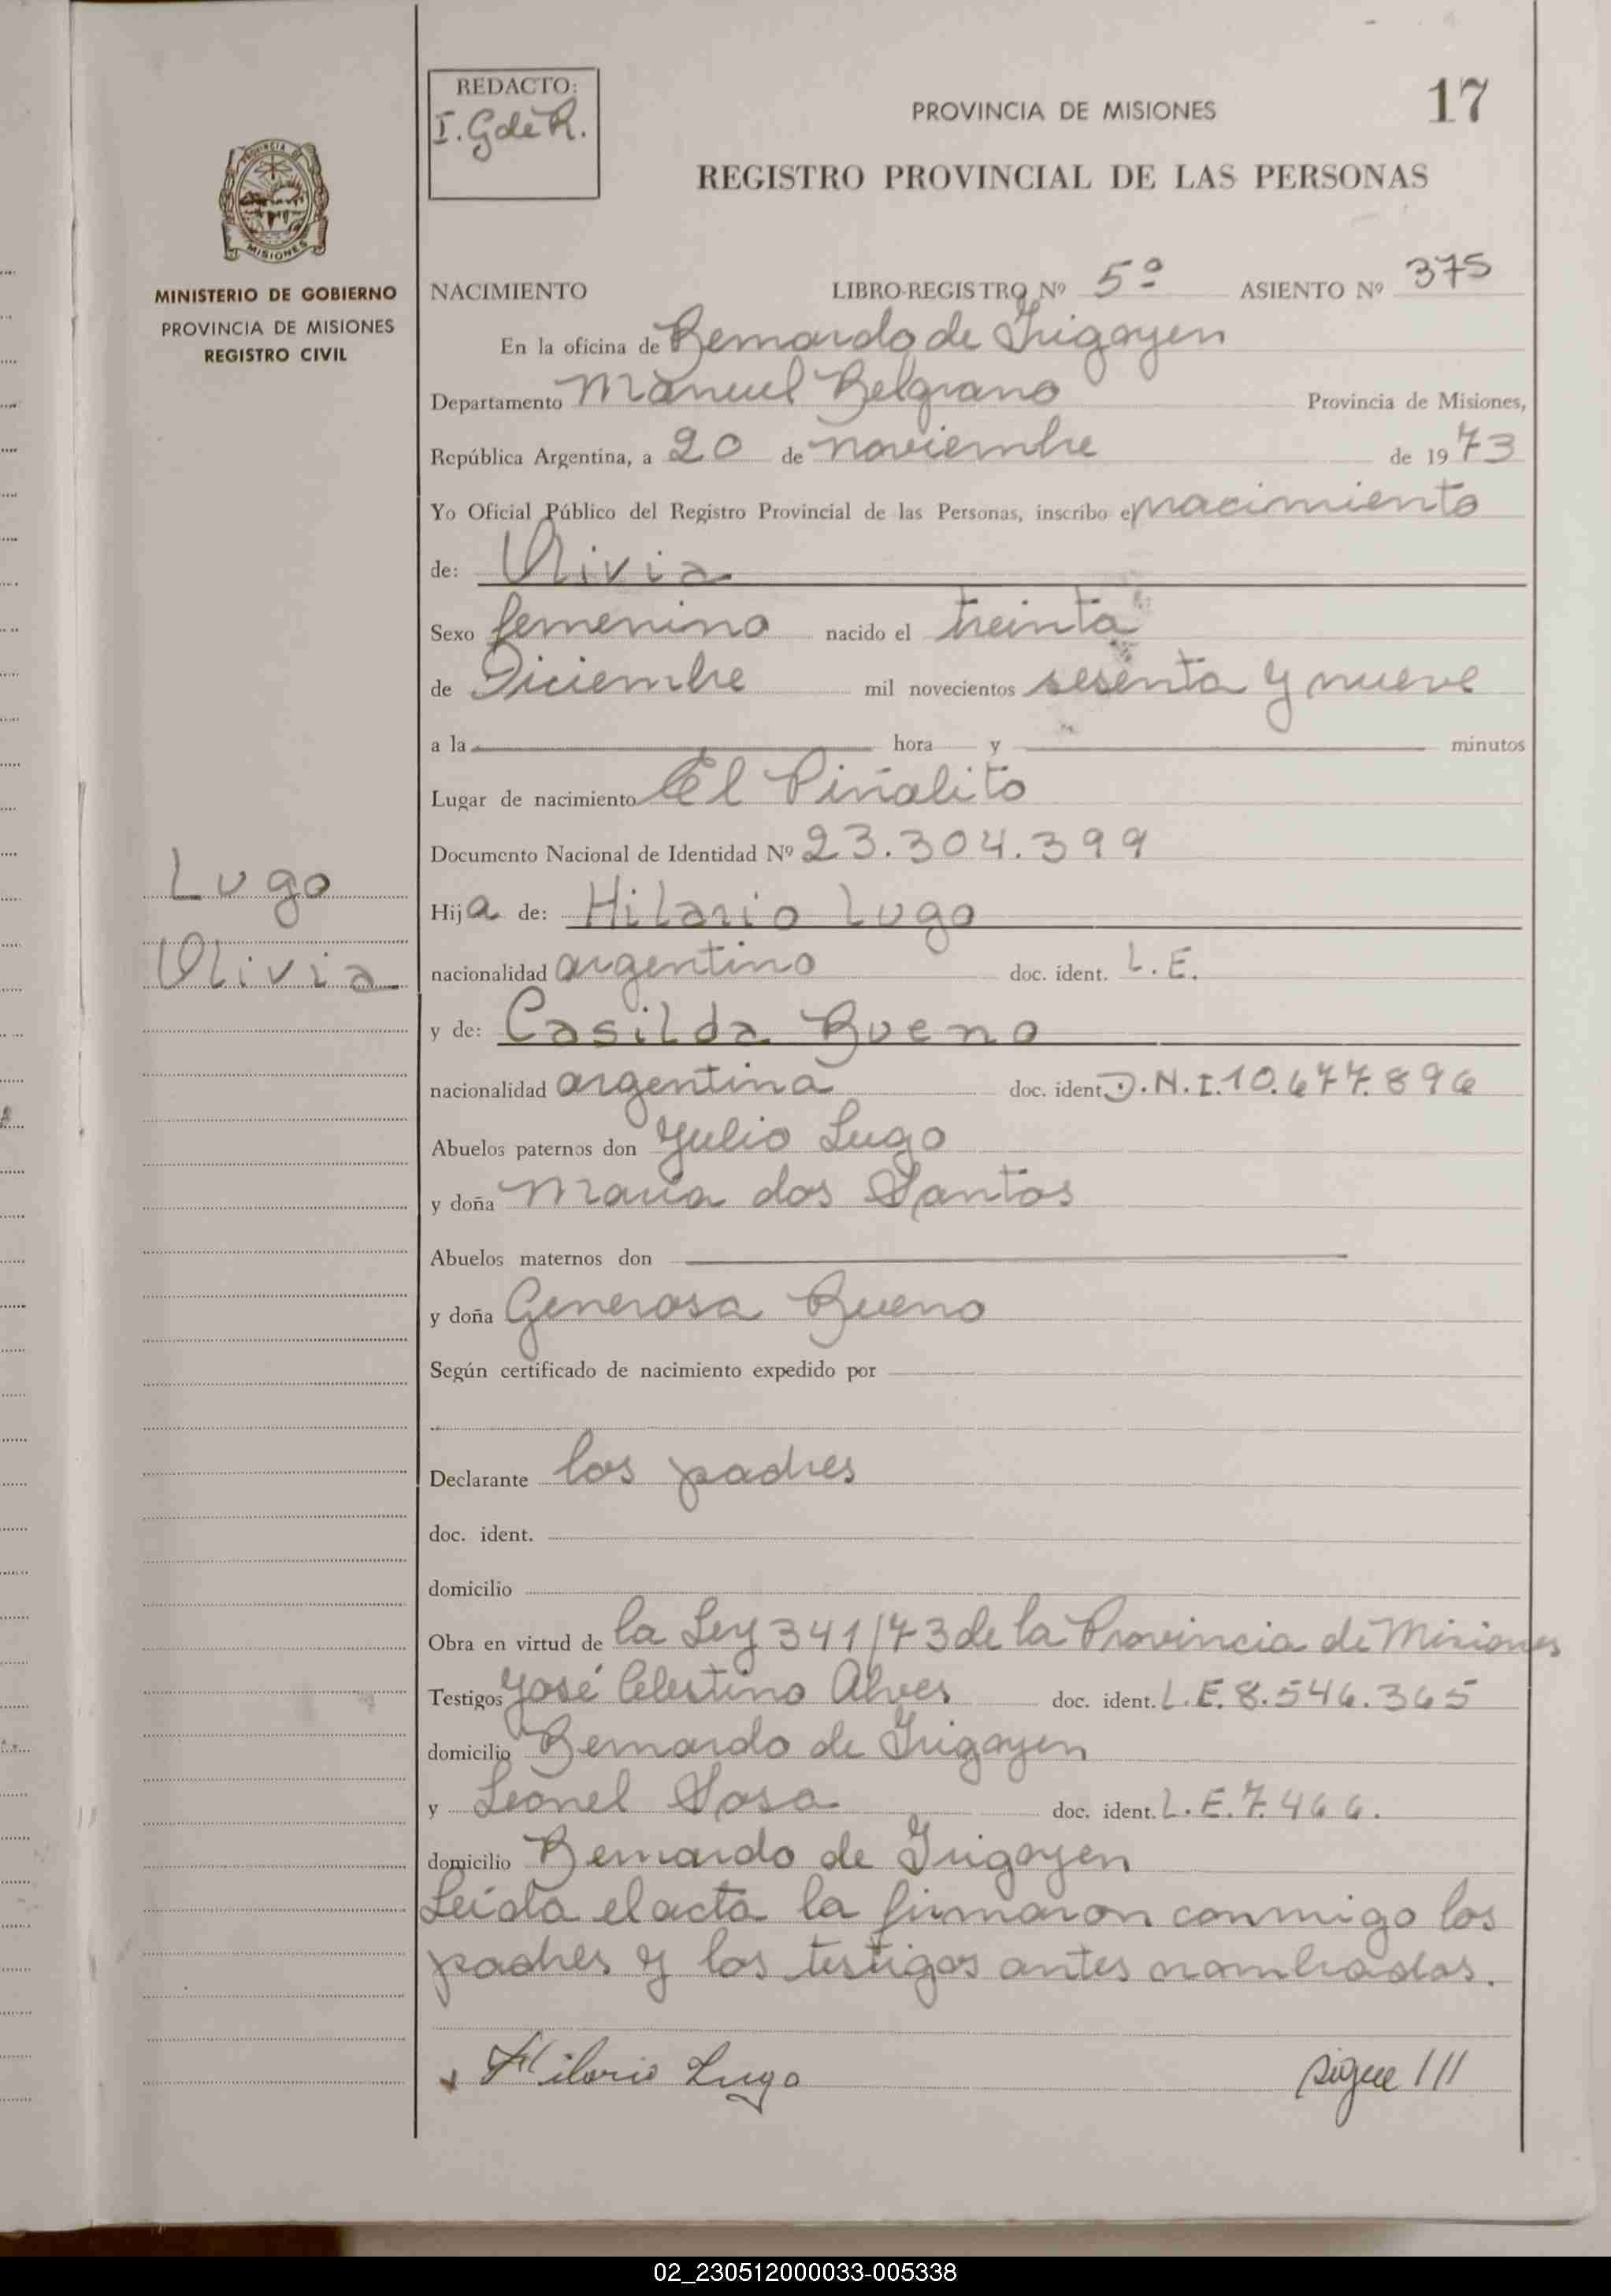 REDACTO:
I. G de R.
PROVINCIA DE MISIONES
17
REGISTRO PROVINCIAL DE LAS PERSONAS
PROVINCIA DE
MISIONES
MINISTERIO DE GOBIERNO
PROVINCIA DE MISIONES
REGISTRO CIVIL
NACIMIENTO LIBRO-REGISTRO Nº 5º ASIENTO Nº 375
En la oficina de Bernardo de Irigoyen
Departamento Manuel Belgrano Provincia de Misiones,
República Argentina, a 20 de noviembre de 1973
Yo Oficial Público del Registro Provincial de las Personas, inscribo el nacimiento
de: Olivia
Sexo femenino nacido el treinta
de Diciembre mil novecientos sesenta y nueve
a la hora y minutos
Lugar de nacimiento El Piñalito
Documento Nacional de Identidad Nº 23.304.399
Lugo
Olivia
Hija de: Hilario Lugo
nacionalidad argentino doc. ident. L.E.
y de: Casilda Bueno
nacionalidad argentina doc. ident. D.N.I. 10.677.896
Abuelos paternos don Julio Lugo
y doña María dos Santos
Abuelos maternos don
y doña Generosa Bueno
Según certificado de nacimiento expedido por
Declarante los padres
doc. ident.
domicilio
Obra en virtud de la Ley 341/73 de la Provincia de Misiones
Testigos José Celestino Alves doc. ident. L.E. 8.546.365
domicilio Bernardo de Irigoyen
y Leonel Sosa doc. ident. L.E. 7.466.
domicilio Bernardo de Irigoyen
Leída el acta la firmaron conmigo los
padres y los testigos antes nombrados.
Hilario Lugo sigue ///
02_230512000033-005338